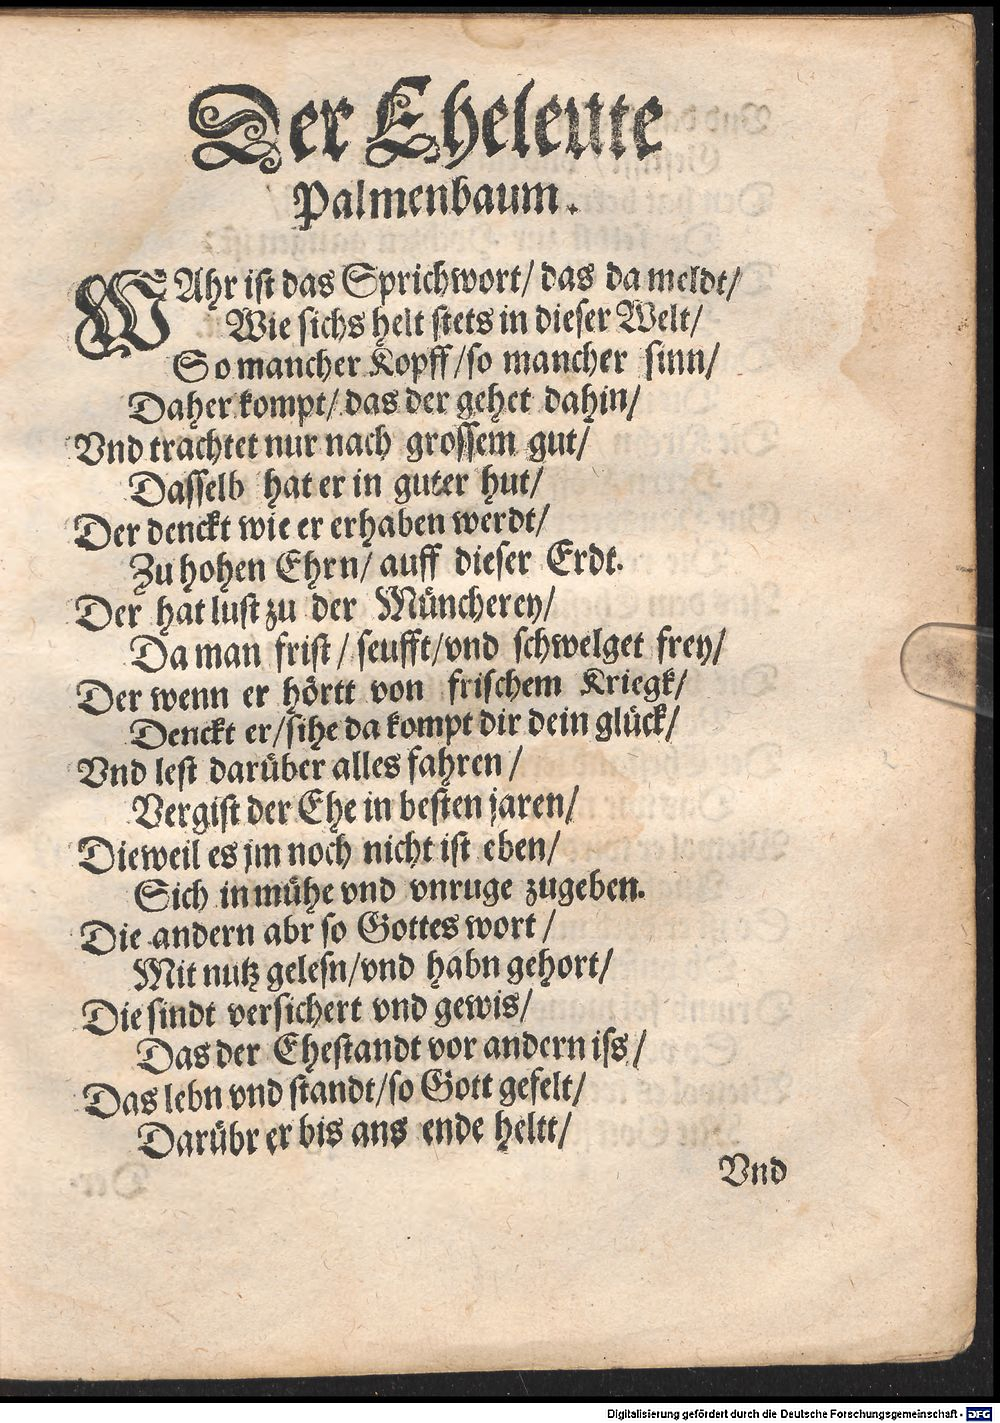 Der Eheleute
Palmenbaum.
WAhr ist das Sprichwort/ das da meldt/
Wie sichs helt stets in dieser Welt/
So mancher Kopff/so mancher sinn/
Daher kompt/ das der gehet dahin/
Vnd trachtet nur nach grossem gut/
Dasselb hat er in guter hut/
Der denckt wie er erhaben werdt/
Zu hohen Ehrn/ auff dieser Erdt.
Der hat lust zu der Müncherey/
Da man frist/ seufft/vnd schwelget frey/
Der wenn er hörtt von frischem Kriegk/
Denckt er/sihe da kompt dir dein glück/
Vnd lest darüber alles fahren/
Vergist der Ehe in besten jaren/
Dieweil es jm noch nicht ist eben/
Sich in mühe vnd vnruge zugeben.
Die andern abr so Gottes wort/
Mit nutz gelesn/vnd habn gehort/
Die sindt versichert vnd gewis/
Das der Ehestandt vor andern iss/
Das lebn vnd standt/so Gott gefelt/
Darübr er bis ans ende heltt/
Vnd
Digitalisierung gefördert durch die Deutsche Forschungsgemeinschaft - DFG